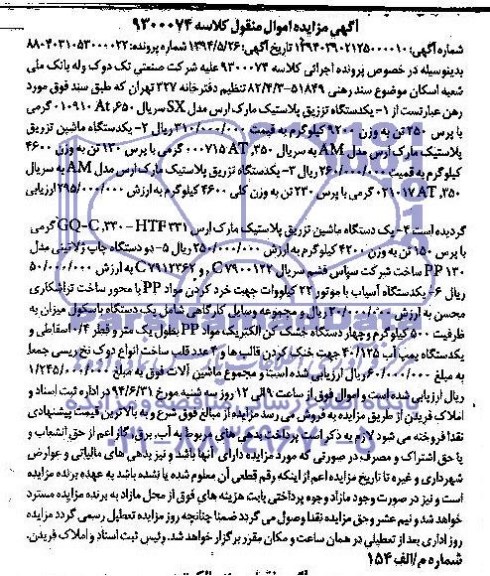 آگهی مزایده اموال منقول کلاسه ۹۳۰۰۰۷۴
شماره آگهی: ۱۳۹۴۰۳۹۰۲۱۲۵۰۰۰۰۱۰ تاریخ آگهی: ۱۳۹۴/۵/۲۶ شماره پرونده: ۸۸۰۴۰۳۱۰۵۳۰۰۰۰۲۲
بدینوسیله در خصوص پرونده اجرائی کلاسه ۹۳۰۰۰۷۴ علیه شرکت صنعتی تک دوک وله بانک ملی
شعبه اسکان موضوع سند رهنی ۵۱۸۴۹-۸۲/۴/۳ تنظیم دفترخانه ۳۲۷ تهران که طبق سند فوق مورد
رهن عبارتست از ۱- یکدستگاه تزریق پلاستیک مارک ارس مدل SX سریال ۶۵۰, At ۰۱۰۹۱۰ گرمی
با پرس ۲۵۰ تن به وزن ۹۲۰۰ کیلوگرم به قیمت ۳۱۰/۰۰۰/۰۰۰ ریال ۲- یکدستگاه ماشین تزریق
پلاستیک مارک ارس مدل AM به سریال ۲۵۰, AT ۰۰۰۷۱۵ گرمی با پرس ۱۳۰ تن به وزن ۴۶۰۰
کیلوگرم به قیمت ۲۶۰/۰۰۰/۰۰۰ ریال ۳- یکدستگاه تزریق پلاستیک مارک ارس مدل AM به سریال
۲۵۰, AT ۰۲۱۰۱۷ گرمی با پرس ۲۳۰ تن به وزن کلی ۴۶۰۰ کیلوگرم به ارزش ۲۹۵/۰۰۰/۰۰۰ ارزیابی
گردیده است ۴- یک دستگاه ماشین تزریق پلاستیک مارک ارس GQ-C,۳۳۰-HTF۳۳۱ گرمی
با پرس ۱۵۰ تن به وزن ۴۲۰۰ کیلوگرم به ارزش ۲۵۰/۰۰۰/۰۰۰ ریال ۵- دو دستگاه چاپ ژلاتینی مدل
PP ۱۳۰ ساخت شرکت سپاس قشم سریال C۷۹۰۰۱۲۲ و C۷۹۱۲۳۶۲ به ارزش ۵۰/۰۰۰/۰۰۰
ریال ۶- یکدستگاه آسیاب با موتور ۲۲ کیلووات جهت خرد کردن مواد PP با محور ساخت تراشکاری
محسن به ارزش ۲۰/۰۰۰/۰۰۰ ریال و مجموعه وسایل کارگاهی شامل یک دستگاه باسکول میزان به
ظرفیت ۵۰۰ کیلوگرم و چهار دستگاه خشک کن الکتریک مواد PP بطول یک متر و قطر ۰/۴ اسقاطی و
یکدستگاه پمپ آب ۴۰/۱۲۵ جهت خنک کردن قالب ها و ۴ عدد قلب ساخت انواع دوک نخ ریسی جمعا
به مبلغ ۶۰/۰۰۰/۰۰۰ ریال ارزیابی شده است و مجموع ماشین آلات فوق به مبلغ ۱/۲۴۵/۰۰۰/۰۰۰
ریال ارزیابی شده است و اموال فوق از ساعت ۹ الی ۱۲ روز سه شنبه مورخ ۹۴/۶/۳۱ در اداره ثبت اسناد و
املاک فریدن از طریق مزایده به فروش می رسد مزایده از مبالغ فوق شروع و به بالاترین قیمت پیشنهادی
نقدا فروخته می شود لازم به ذکر است پرداخت بدهی های مربوط به آب، برق، گاز اعم از حق انشعاب و
یا حق اشتراک و مصرف در صورتی که مورد مزایده دارای آنها باشد و نیز بدهی های مالیاتی و عوارض
شهرداری و غیره تا تاریخ مزایده اعم از اینکه رقم قطعی آن معلوم شده یا نشده باشد به عهده برنده مزایده
است و نیز در صورت وجود مازاد وجوه پرداختی بابت هزینه های فوق از محل مازاد به برنده مزایده مسترد
خواهد شد و نیم عشر و حق مزایده نقدا وصول می گردد ضمنا چنانچه روز مزایده تعطیل رسمی گردد مزایده
روز اداری بعد از تعطیلی در همان ساعت و مکان مقرر برگزار خواهد شد. رئیس ثبت اسناد و املاک فریدن.
شماره م/الف ۱۵۴